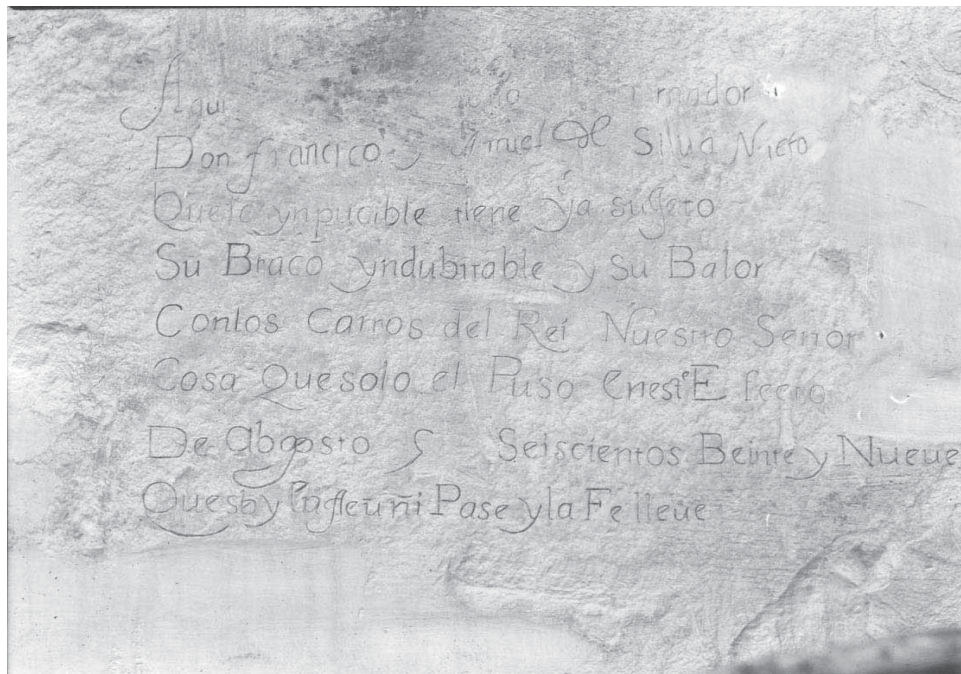 Aqui
Don francisco de Silva Nieto
Quelo ynpucible tiene ya sujeto
Su Braço yndubitable y su Balor
Conlos Carros del Rei Nuestro Señor
Cosa Quesolo el Puso
De Abgosto Seiscientos Beinte y Nueue
Pase y la Fe lleue